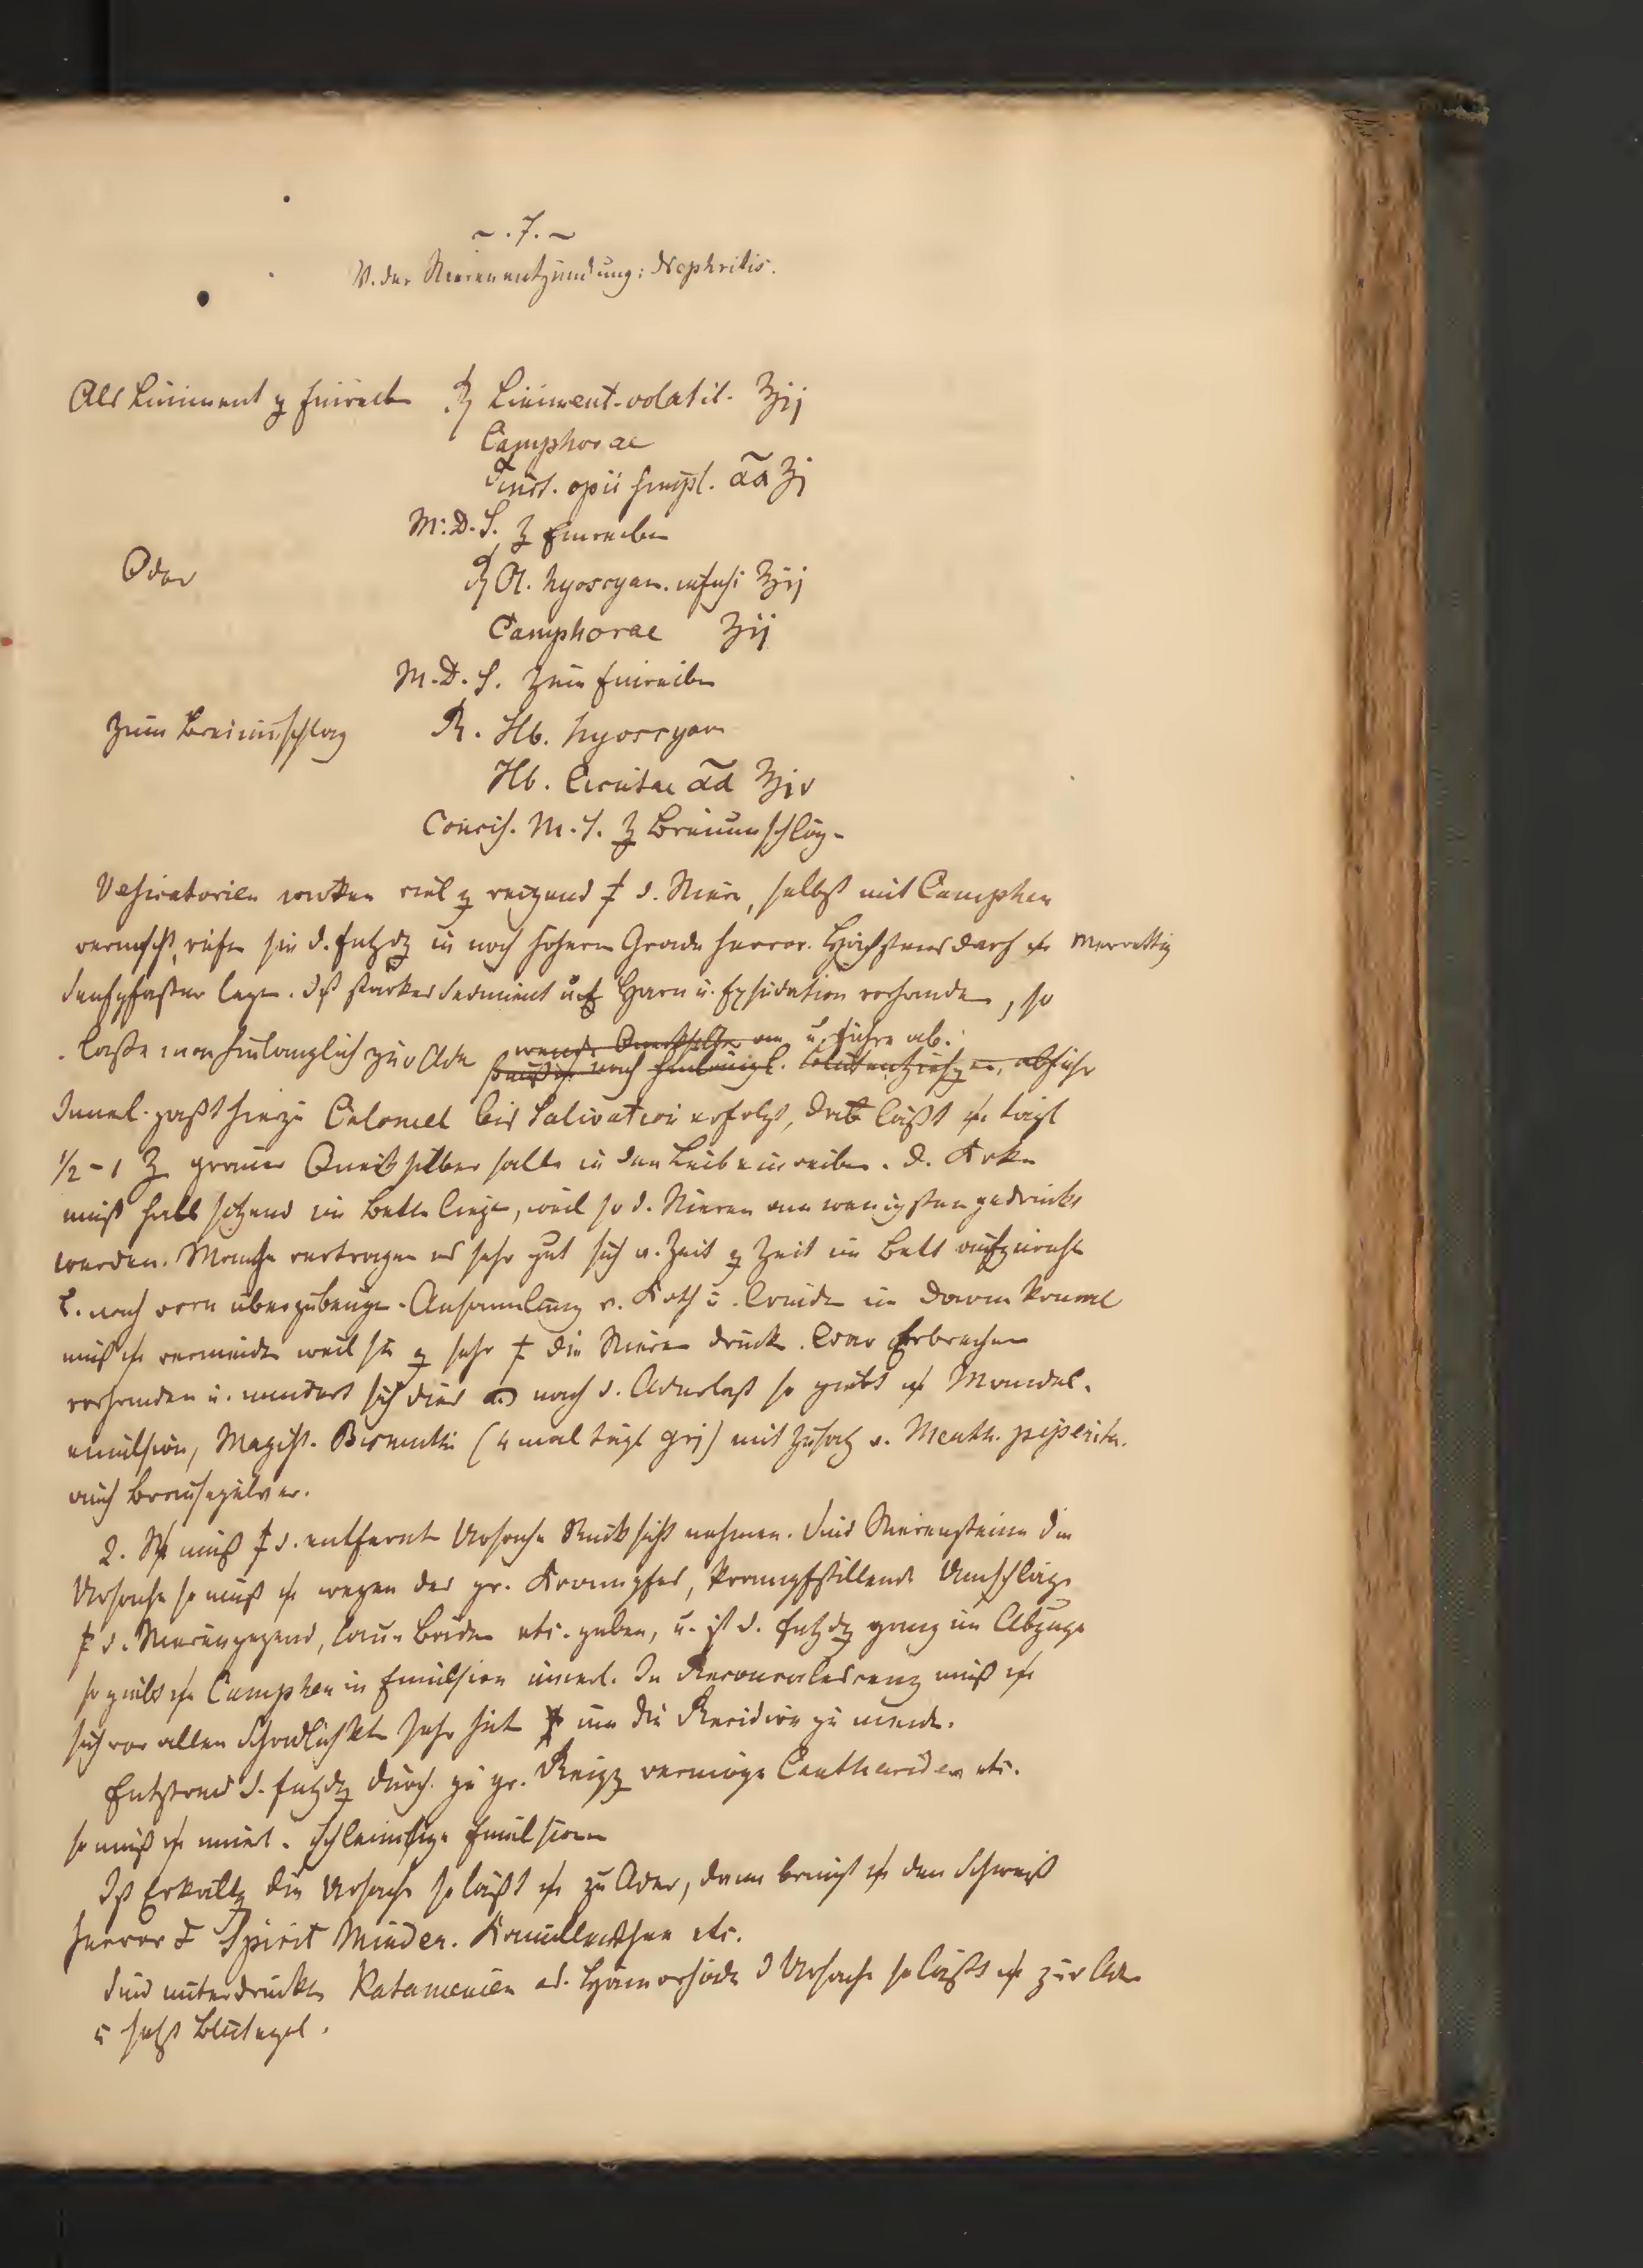 ~ . 7. ~
V. der Nierenentzündung: Nephritis.
Als Liniment z Einreib ℞ Liniment. volatil. ℥ij
Camphorae
Tinct. opii simpl. a͠a ʒj
M. D. S. z Einreiben
Oder ℞ Ol. hyoscyam. infusi ℥ij
Camphorae ʒij
M. D. S. Zum Einreiben
Zum Breiumschlag R. Hb. hyoscyam
Hb. Cicutae a͠a ℥iv
Concis. M. S. z Breiumschläg-
Vesicatorien wirken viel z reizend † d. Niere, selbst mit Camphor
vermischt, rufen sie d. Entzdg in noch höherm Grade hervor. Höchstens darf Meerrettig
Senfpflaster legen. Ist starkes Sediment Harn u. Exsudation vorhanden, so
lasse man hinlänglich zur Ader u. führe ab.
nach hinlängl. Blutentziehg abführ
Innerl. passt hierzu Calomel bis Salivation erfolgt, läßt tägl
1/2 - 1 ʒ graue Quecksilber salbe in den Leib einreiben. D. Krke
muß halb sitzend im Bette liegen, weil so d. Nieren am wenigsten gedrückt
werden. Manche vertragen es sehr gut sich v. Zeit z Zeit im Bett aufzurichten
u. nach vorn überzubeugen. Ansammlung v. Koth u. Crudit im Darm kanal
muß vermeiden weil sie z sehr † die Nieren drück. War Erbrechen
vorhanden u. mindert sich dies nach d. Aderlaß so giebt Mandel.
emulsion, Magist. Bismuthi (4 mal tägl grj) mit Zusatz v. Menth. piperita.
auch Brausepulver.
2. muß † d. entfernt Ursache Rücksicht nehmen. Sind Nierensteine die
Ursache so muß wegen des gr. Krampfes, krampfstillende Umschläge
† d. Nierengegend, laue Bäder etc. geben, u. ist d. Entzdg ganz im Abzuge
so giebt Camphor in Emulsion innerl. In Reconvalescenz muß
sich vor allen Schädlichkt sehr hüt um die Recidive zu meid.
Entstand d. Entzdg durch zu gr. Reizg vermöge Canthariden etc.
so muß innerl. schleimige Emulsionen
Ist Erkältg die Ursache so läßt zu Ader, dann bringt den Schweiß
hervor Spirit Minder. Kamillenthee etc.
Sind unterdrückte Katamenien od. Hämorhoide d Ursache so läßt zur Ader
u setzt Blutegel.